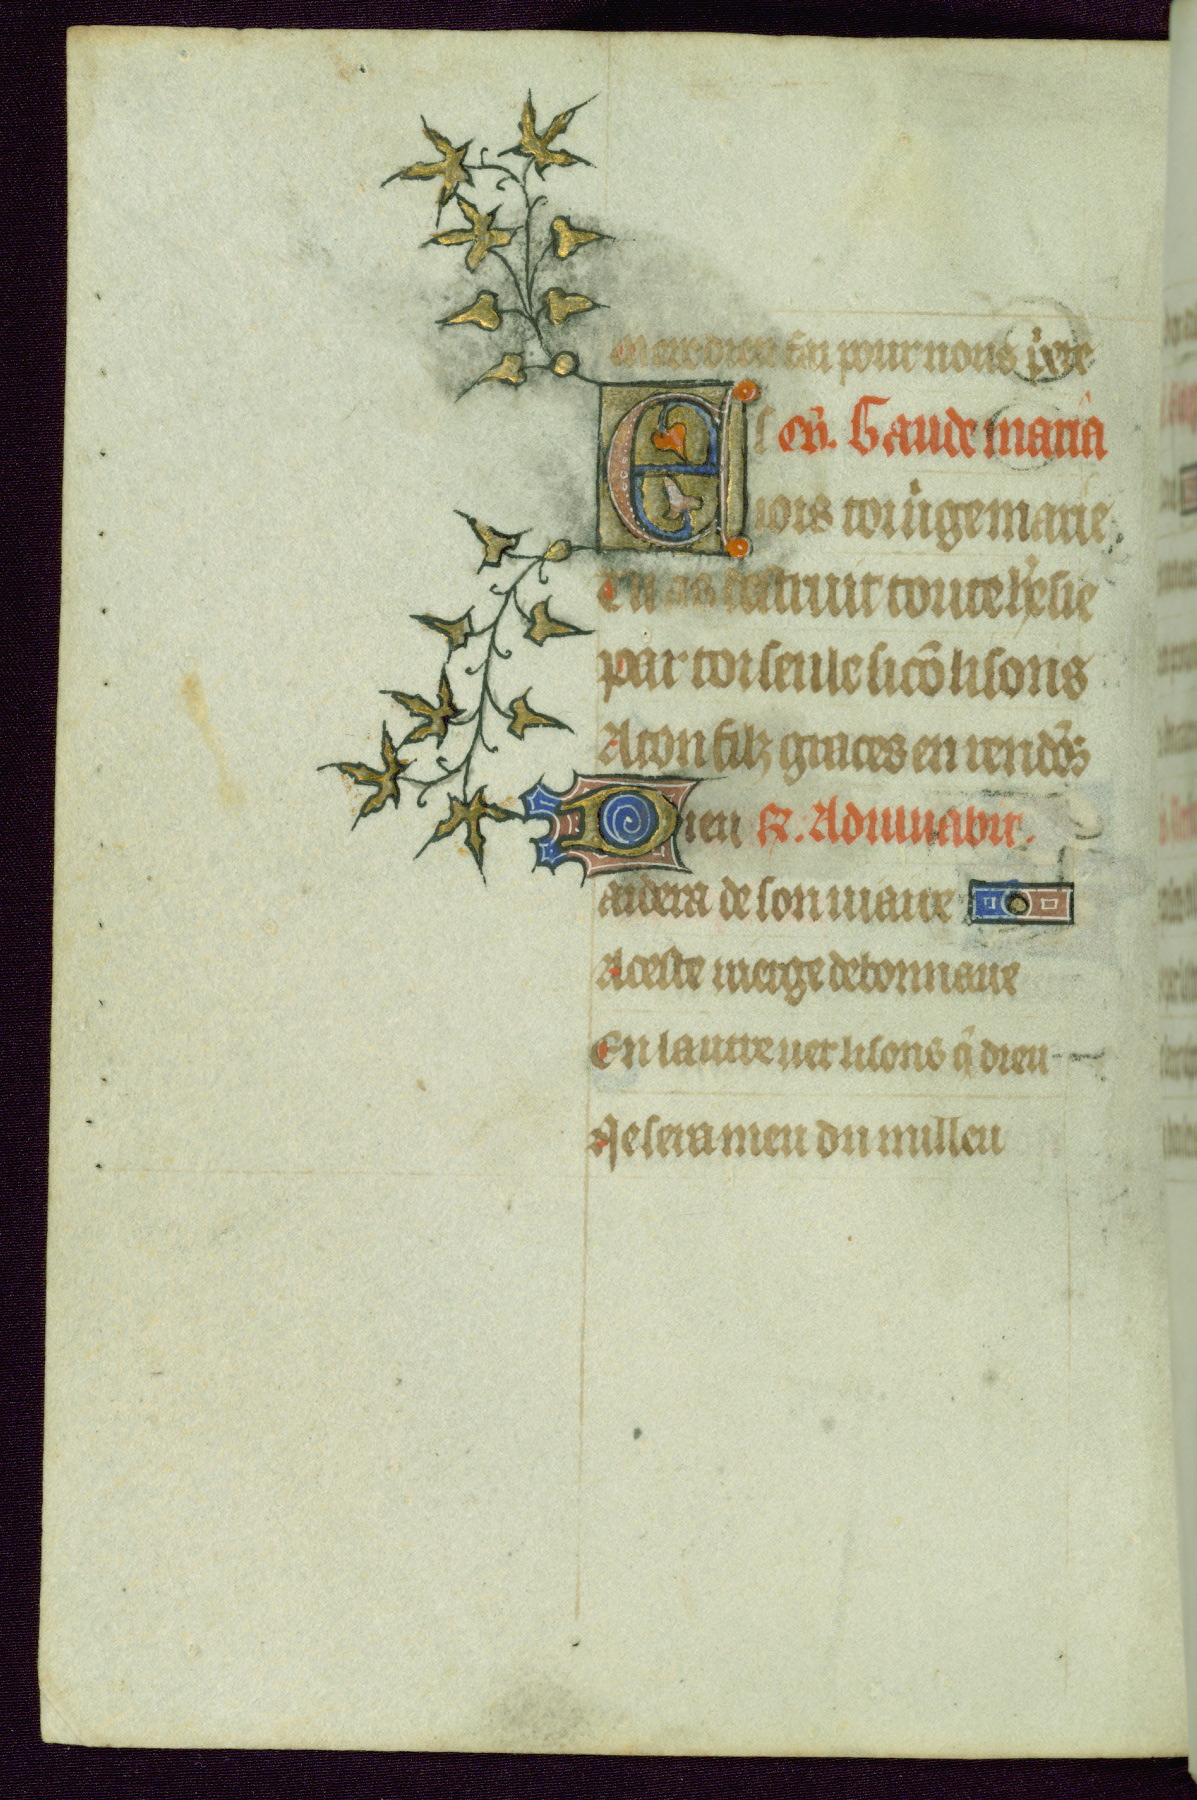 Mere dieu fai pour nous priere
El añ. Gaude maria
iois toi uirge marie
Tu as destruit toute heresie
par toi seule si cõ lisons
A ton filz graces en rendõs
Dieu R. Adiuuabit.
aidera de son uiaire
A ceste uierge debonnaire
En lautre uer lisons q̃ dieu
Ne sera meu du milleu